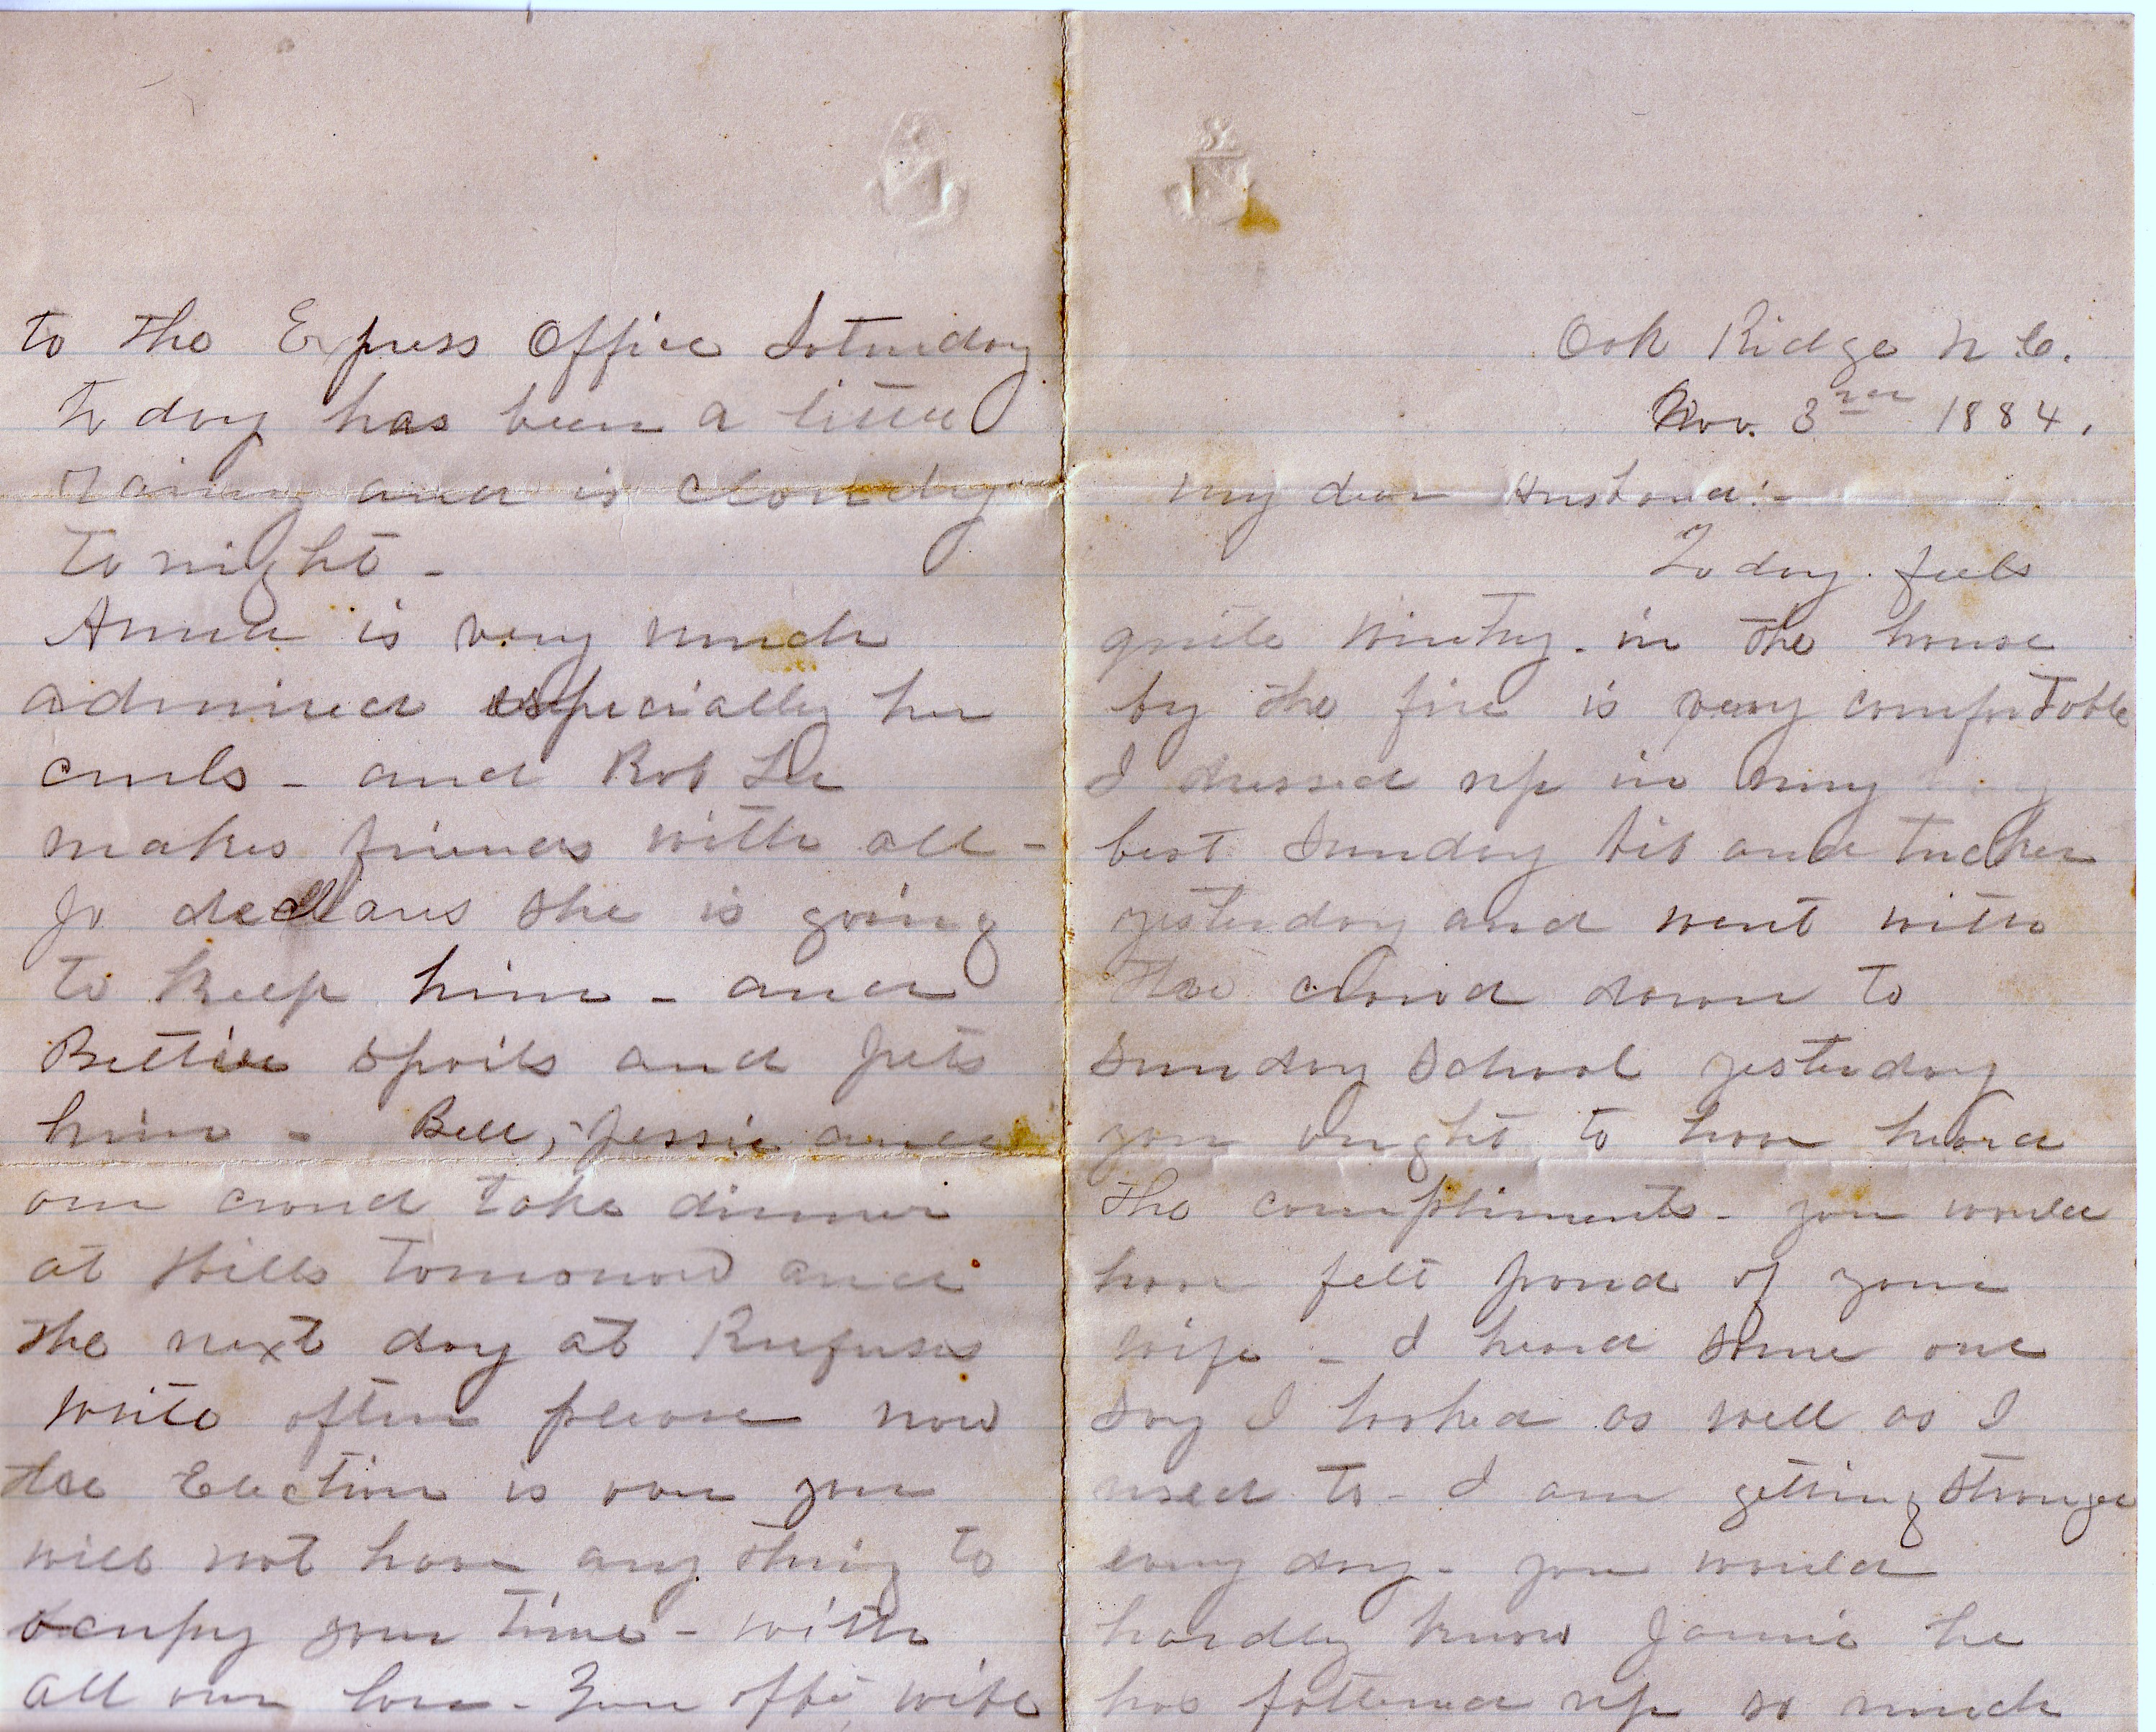 Oak Ridge N C.
Nov. 3rd 1884.
My dear Husband:-
Today feels
quite wintry. in the house
by the fire is very comfortable
I dressed up in my
best Sunday bib and tucker
yesterday and went with
the crowd down to
Sunday School yesterday
you ought to have heard
the compliments - you would
have felt proud of your
wife - I heard some one
say I looked as well as I
used to - I am getting stronger
every day - you would
hardly know Jamie he
has fattened up so much
to the Express Office Saturday
to day has been a little
rainy and is cloudy
to night -
Anna is very much
admired especially her
curls - and Rob Lee
makes friends with all -
Jo declares she is going
to keep him - and
Bettie spoils and pets
him - Bell, Jessie and
our crowd take dinner
at Wills tomorrow and
the next day at Rufuses
Write often please now
the Election is over you
will not have any thing to
ocupy your time - with
all our love - Your affe wife